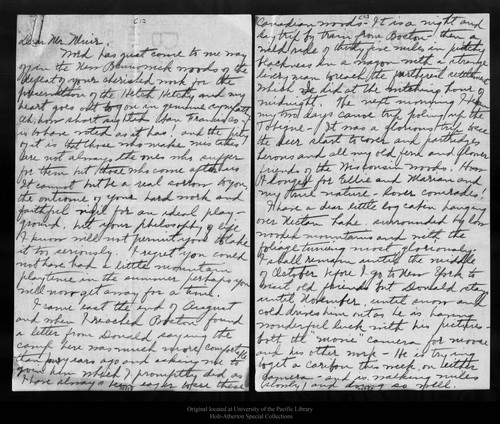 Dear Mr. Muir:
Word has just come to me way
up in the New Brunswick woods of the
defeat of your cherished work for the
preservation of the Hetch Hetchy and my
heart goes out to you in genuine sympathy.
Oh, how short sighted San Francisco
is to have voted as it has! and the pity
of it is that those who make mistakes
are not always the ones who suffer
for them but those who come afterwards
It cannot but be a real sorrow to you,
the outcome of your hard work and
faithful for an ideal play-
ground, but your philosophy of life
I know will not permit you to take
it too seriously. I regret you could
not have had a little mountain
playtime in the summer perhaps you
will now get away for a time.
I came east the end of August
and when I reached Boston found
a letter from Donald saying the
camp here was much more comfortable
than two years ago and asking me to
join him which I promptly did, as
I have always been eager to see these
Canadian woods. It is a night and
day trip by train from Boston - then a
wild ride of thirty five miles in pitchy
blackness in a wagon with a strange
livery man to reach the settlement
which we did at the witching hour of
midnight. The next morning I began
my two days canoe trip poling up the
Tobique. It was a glorious trip to see
the deer start to cover and partridge,
herons and all my old fern and flower
friends of the Wisconsin woods. How
I longed for Nellie and Marian and
my three nature-lover comrades!
I have a dear little log cabin hanging
over Nictau Lake surrounded by low
wooded mountains and with the
foliage turning most gloriously
I shall remain until the middle
of October before I go to New York to
visit old friends but Donald stays
until November, until snow and
cold drives him out as he is having
wonderful luck with his pictures -
both the "movie" camera for moose
and his other work - He is trying
to get a caribou this week, on either
camera - and is walking miles
alone, and doing so well.
Original located at University of the Pacific Library
Holt-Atherton Special Collections